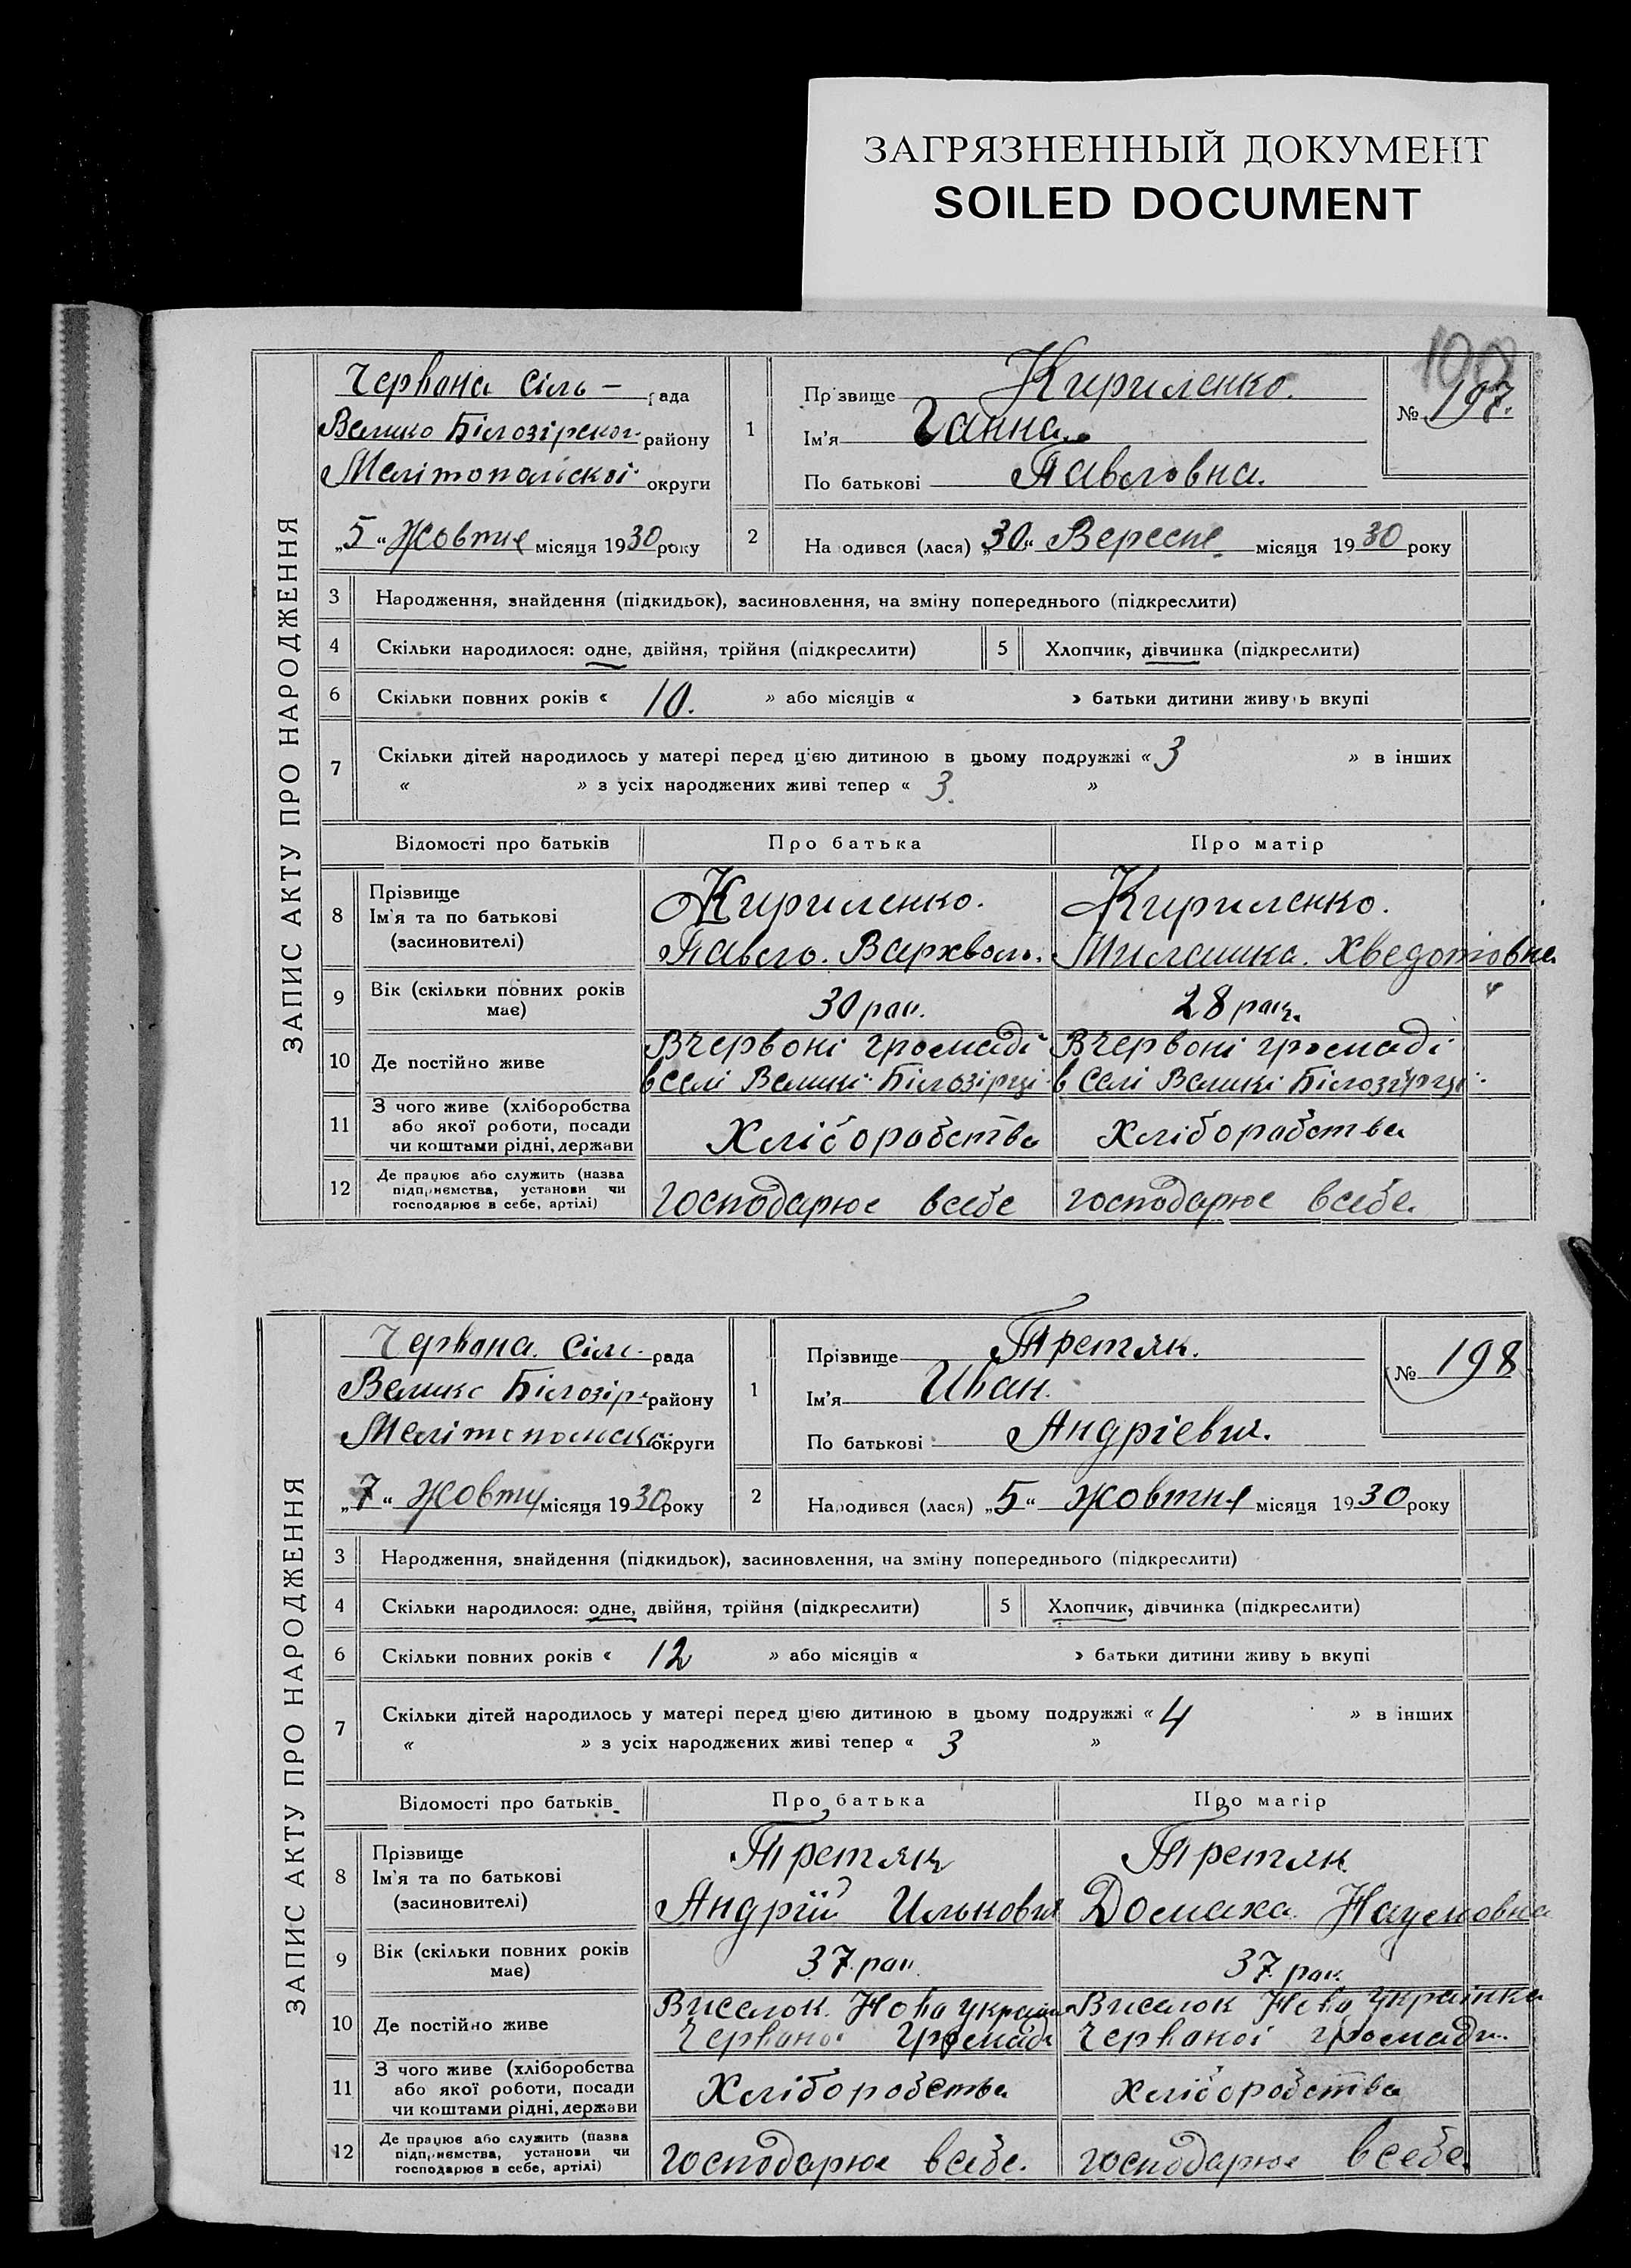 ЗАГРЯЗНЕННЫЙ ДОКУМЕНТ
SOILED DOCUMENT
100
ЗАПИС АКТУ ПРО НАРОДЖЕННЯ
Червона Сіль- рада
Велико Білозірског району
Мелітопольскої округи
„5“ Жовтня місяця 1930 року
1
Прізвище Кириленко.
Ім'я Ганна.
По батькові Павловна.
№ 197.
2
На одився (лася) „30“ Вересне місяця 1930 року
3 Народження, знайдення (підкидьок), засиновлення, на зміну попереднього (підкреслити)
4 Скільки народилося: одне, двійня, трійня (підкреслити) 5 Хлопчик, дівчинка (підкреслити)
6 Скільки повних років « 10. » або місяців « » батьки дитини живуть вкупі
7 Скільки дітей народилось у матері перед цією дитиною в цьому подружжі «3 » в інших
« » з усіх народжених живі тепер « 3. »
Відомості про батьків Про батька Про матір
8 Прізвище
Ім'я та по батькові
(засновителі)
Кириленко.
Павло. Вархвол.
Кириленко.
Милашка. Хведотовна
9 Вік (скільки повних років має)
30 рап.
28 рап.
10 Де постійно живе
Вчервоні громаді
в селі Велики Білозірці
Вчервоні громаді
в селі Великі Білозірці
11 З чого живе (хліборобства
або якої роботи, посади
чи коштами рідні, держави
Хліборобства
Хліборобства
12 Де працює або служить (назва
підприємства, установи чи
господарює в себе, артілі)
господарює всебе
господарює всебе.
ЗАПИС АКТУ ПРО НАРОДЖЕННЯ
Червона. Сіль. рада
Велико Білозір. району
округи
„7“ Жовтня місяця 1930 року
1
Прізвище Третяк.
Ім'я Иван.
По батькові Андріевич.
№ 198
2
Народився (лася) „5“ Жовтня місяця 1930 року
3 Народження, знайдення (підкидьок), засиновлення, на зміну попереднього (підкреслити)
4 Скільки народилося: одне, двійня, трійня (підкреслити) 5 Хлопчик, дівчинка (підкреслити)
6 Скільки повних років « 12 » або місяців « » батьки дитини живу ь вкупі
7 Скільки дітей народилось у матері перед цією дитиною в цьому подружжі «4 » в інших
« » з усіх народжених живі тепер « 3 »
Відомості про батьків Про батька Про матір
8 Прізвище
Ім'я та по батькові
(засиновителі)
Третяк
Андрій Илькович
Третяк
Домаха. Наумовна
9 Вік (скільки повних років має)
37. рап.
37. рап.
10 Де постійно живе
Виселок. Нова
Червоної громади
Виселок Нова Українка
Червоної громади.
11 З чого живе (хліборобства
або якої роботи, посади
чи коштами рідні, держави
Хліборобства
Хліборобства
12 Де працює або служить (назва
підприємства, установи чи
господарює в себе, артілі)
господарює всебе.
господарює всебе.